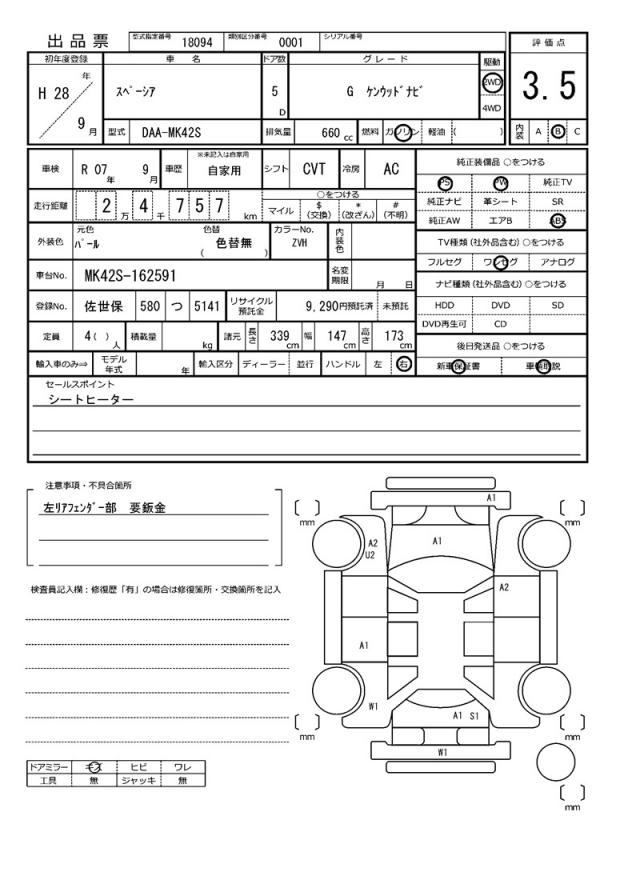 出品票 型式指定番号 18094 類別区分番号 0001 シリアル番号
初年度登録 車名 ドア数 グレード 駆動 評価点
H 28 年 9 月 スペーシア 5 D G ケンウッドナビ 2WD 4WD 3.5
型式 DAA-MK42S 排気量 660 cc 燃料 ガソリン 軽油 ( ) 内装 A B C
車検 R 07 年 9 月 車歴 ※未記入は自家用 自家用 シフト CVT 冷房 AC
走行距離 2 万 4 千 7 5 7 km ○をつける マイル $ (交換) * (改ざん) # (不明)
外装色 元色 パール 色替 ( 色替無 ) カラーNo. ZVH 内装色
車台No. MK42S-162591 名変期限 月 日
登録No. 佐世保 580 つ 5141 リサイクル預託金 9,290円預託済 未預託
定員 4 ( ) 人 積載量 kg 諸元 長さ 339 cm 幅 147 cm 高さ 173 cm
輸入車のみ⇒ モデル年式 年 輸入区分 ディーラー 並行 ハンドル 左 右
純正装備品 ○をつける
PS PW 純正TV
純正ナビ 革シート SR
純正AW エアB ABS
TV種類 (社外品含む) ○をつける
フルセグ ワンセグ アナログ
ナビ種類 (社外品含む) ○をつける
HDD DVD SD
DVD再生可 CD
後日発送品 ○をつける
新車保証書 車輌取説
セールスポイント
シートヒーター
注意事項・不具合箇所
左リアフェンダー部 要鈑金
検査員記入欄:修復歴「有」の場合は修復箇所・交換箇所を記入
ドアミラー キズ ヒビ ワレ
工具 無 ジャッキ 無
A1
[ ] mm [ ] mm
A2
U2
A1
A2
A1
W1
A1 S1
[ ] mm [ ] mm
W1
[ ] mm